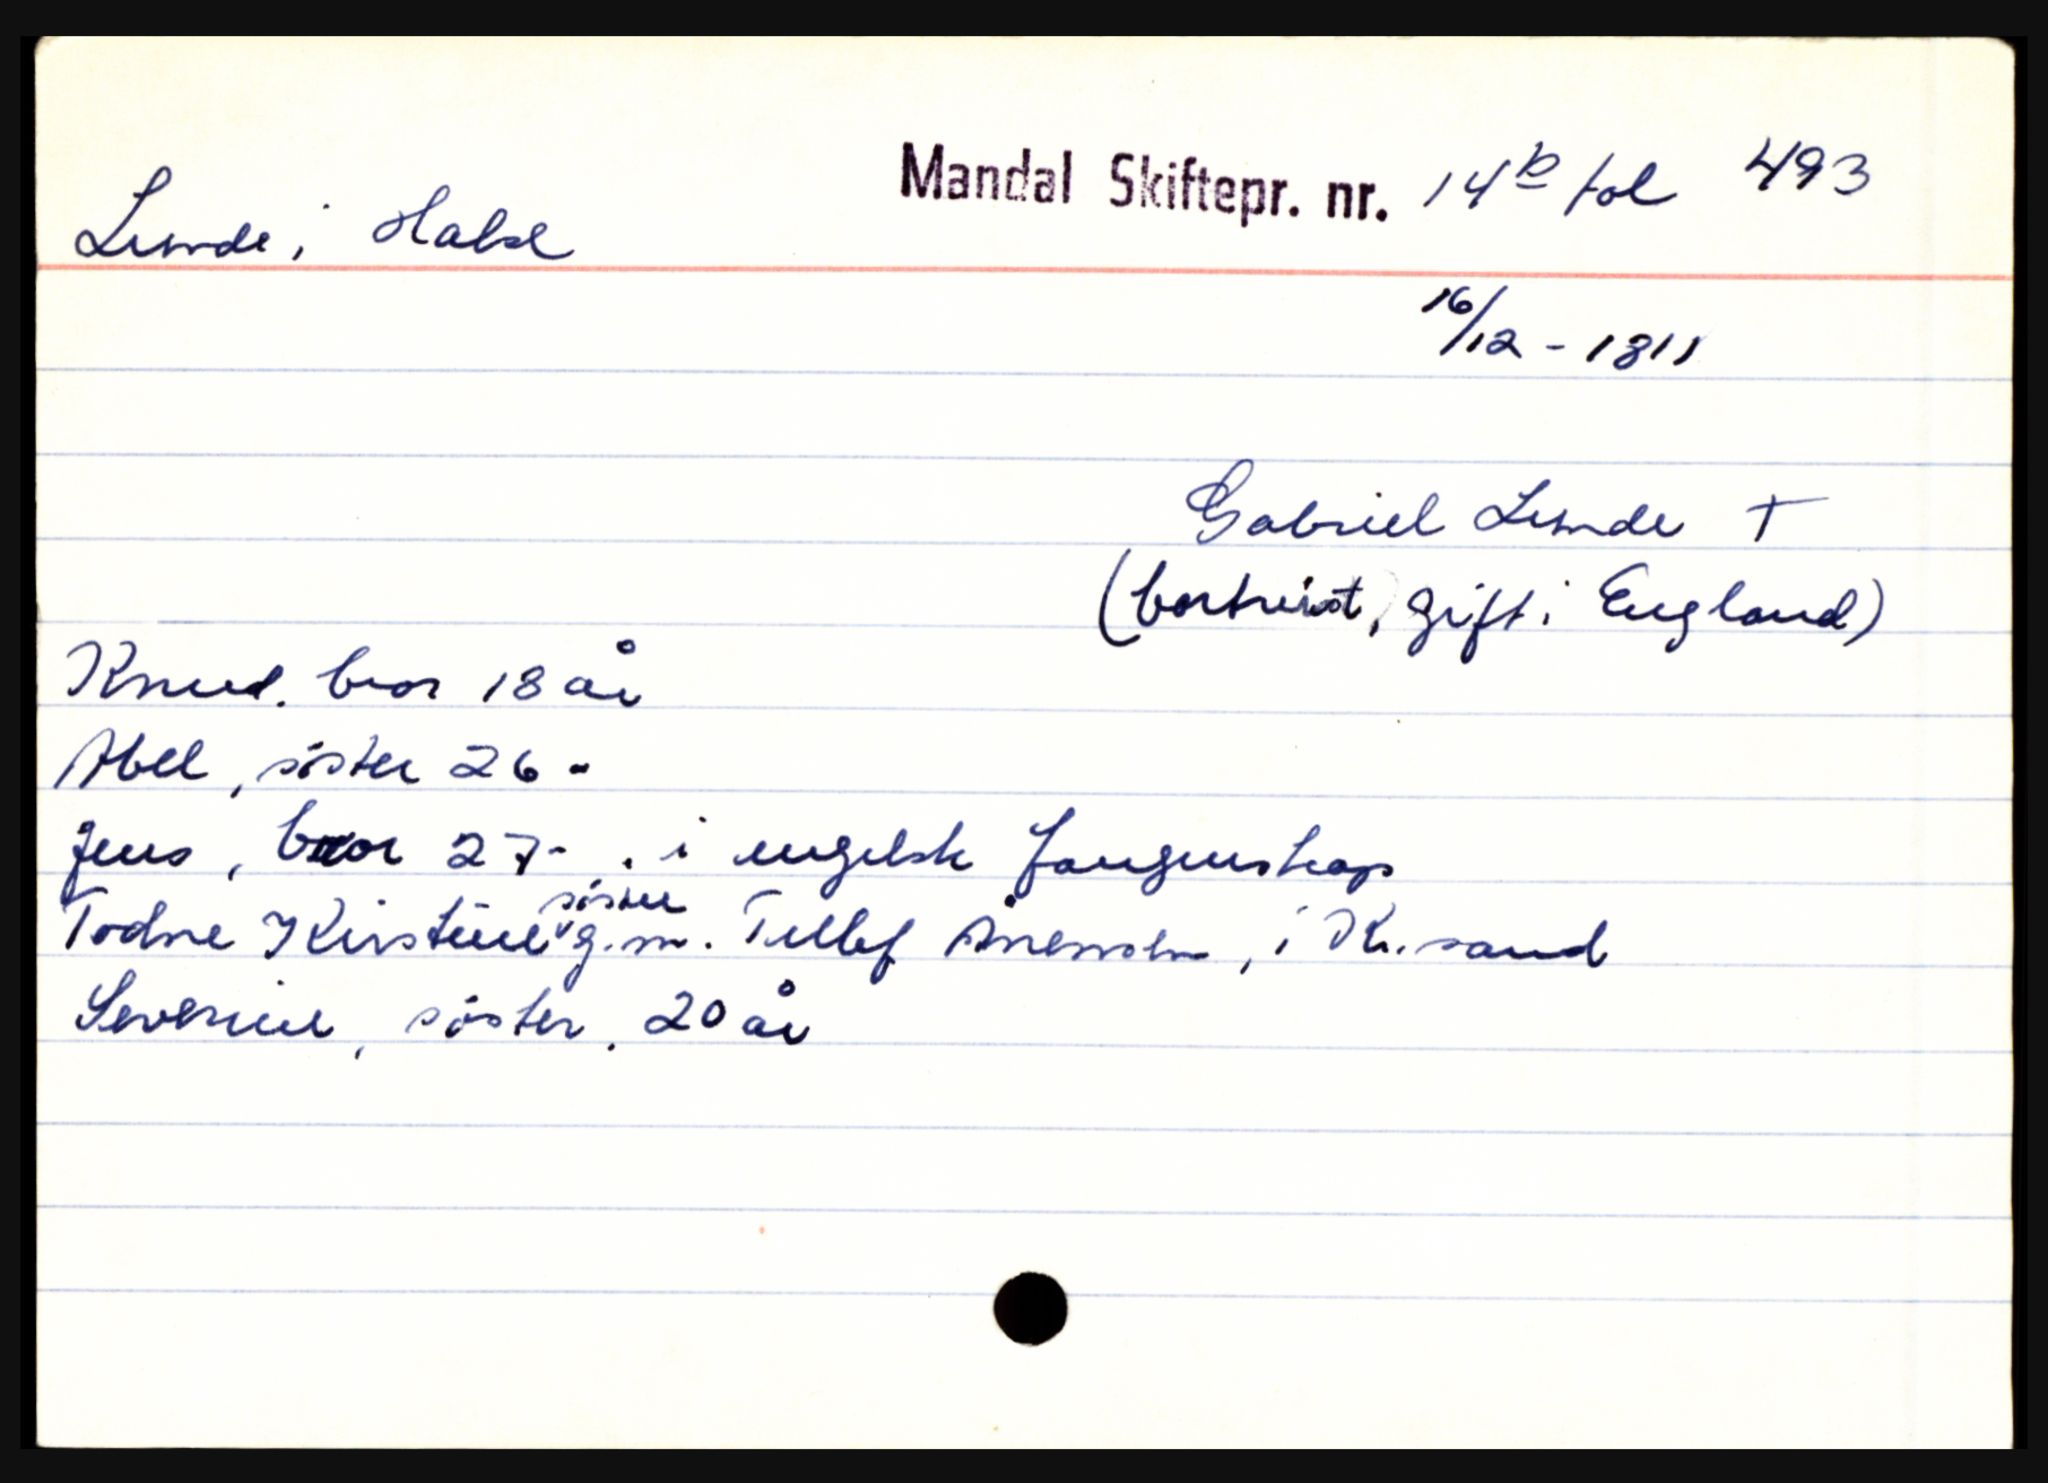 Mandal Skiftepr. nr. 14b fol 493
Lunde i Halse
16/12 - 1811
Gabriel Lunde †
(bortreist, gift i England)
Knud. bror 18 år
Abel, søster 26 -
Jens, bror 27 - . i engelsk fangenskap
Todne Kirstine søster g.m. Tellef , i Kr.sand
Severine, søster. 20 år